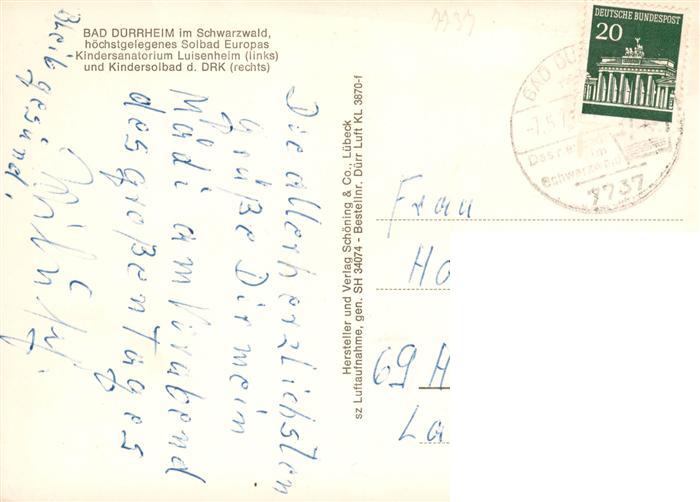 BAD DÜRRHEIM im Schwarzwald,
höchstgelegenes Solbad Europas
Kindersanatorium Luisenheim (links)
und Kindersolbad d. DRK (rechts)
Die allerherzlichsten
Grüße Dir mein
Mädi am Vorabend
des großen Tages
Bleib gesund!
Hersteller und Verlag Schöning & Co., Lübeck
sz Luftaufnahme, gen. SH 34074 - Bestellnr. Dürr Luft KL 3870-f
7737
DEUTSCHE BUNDESPOST
20
BAD DÜ
-7.5.7
Schwarzwald
7737
Frau
Ho
69 H
La